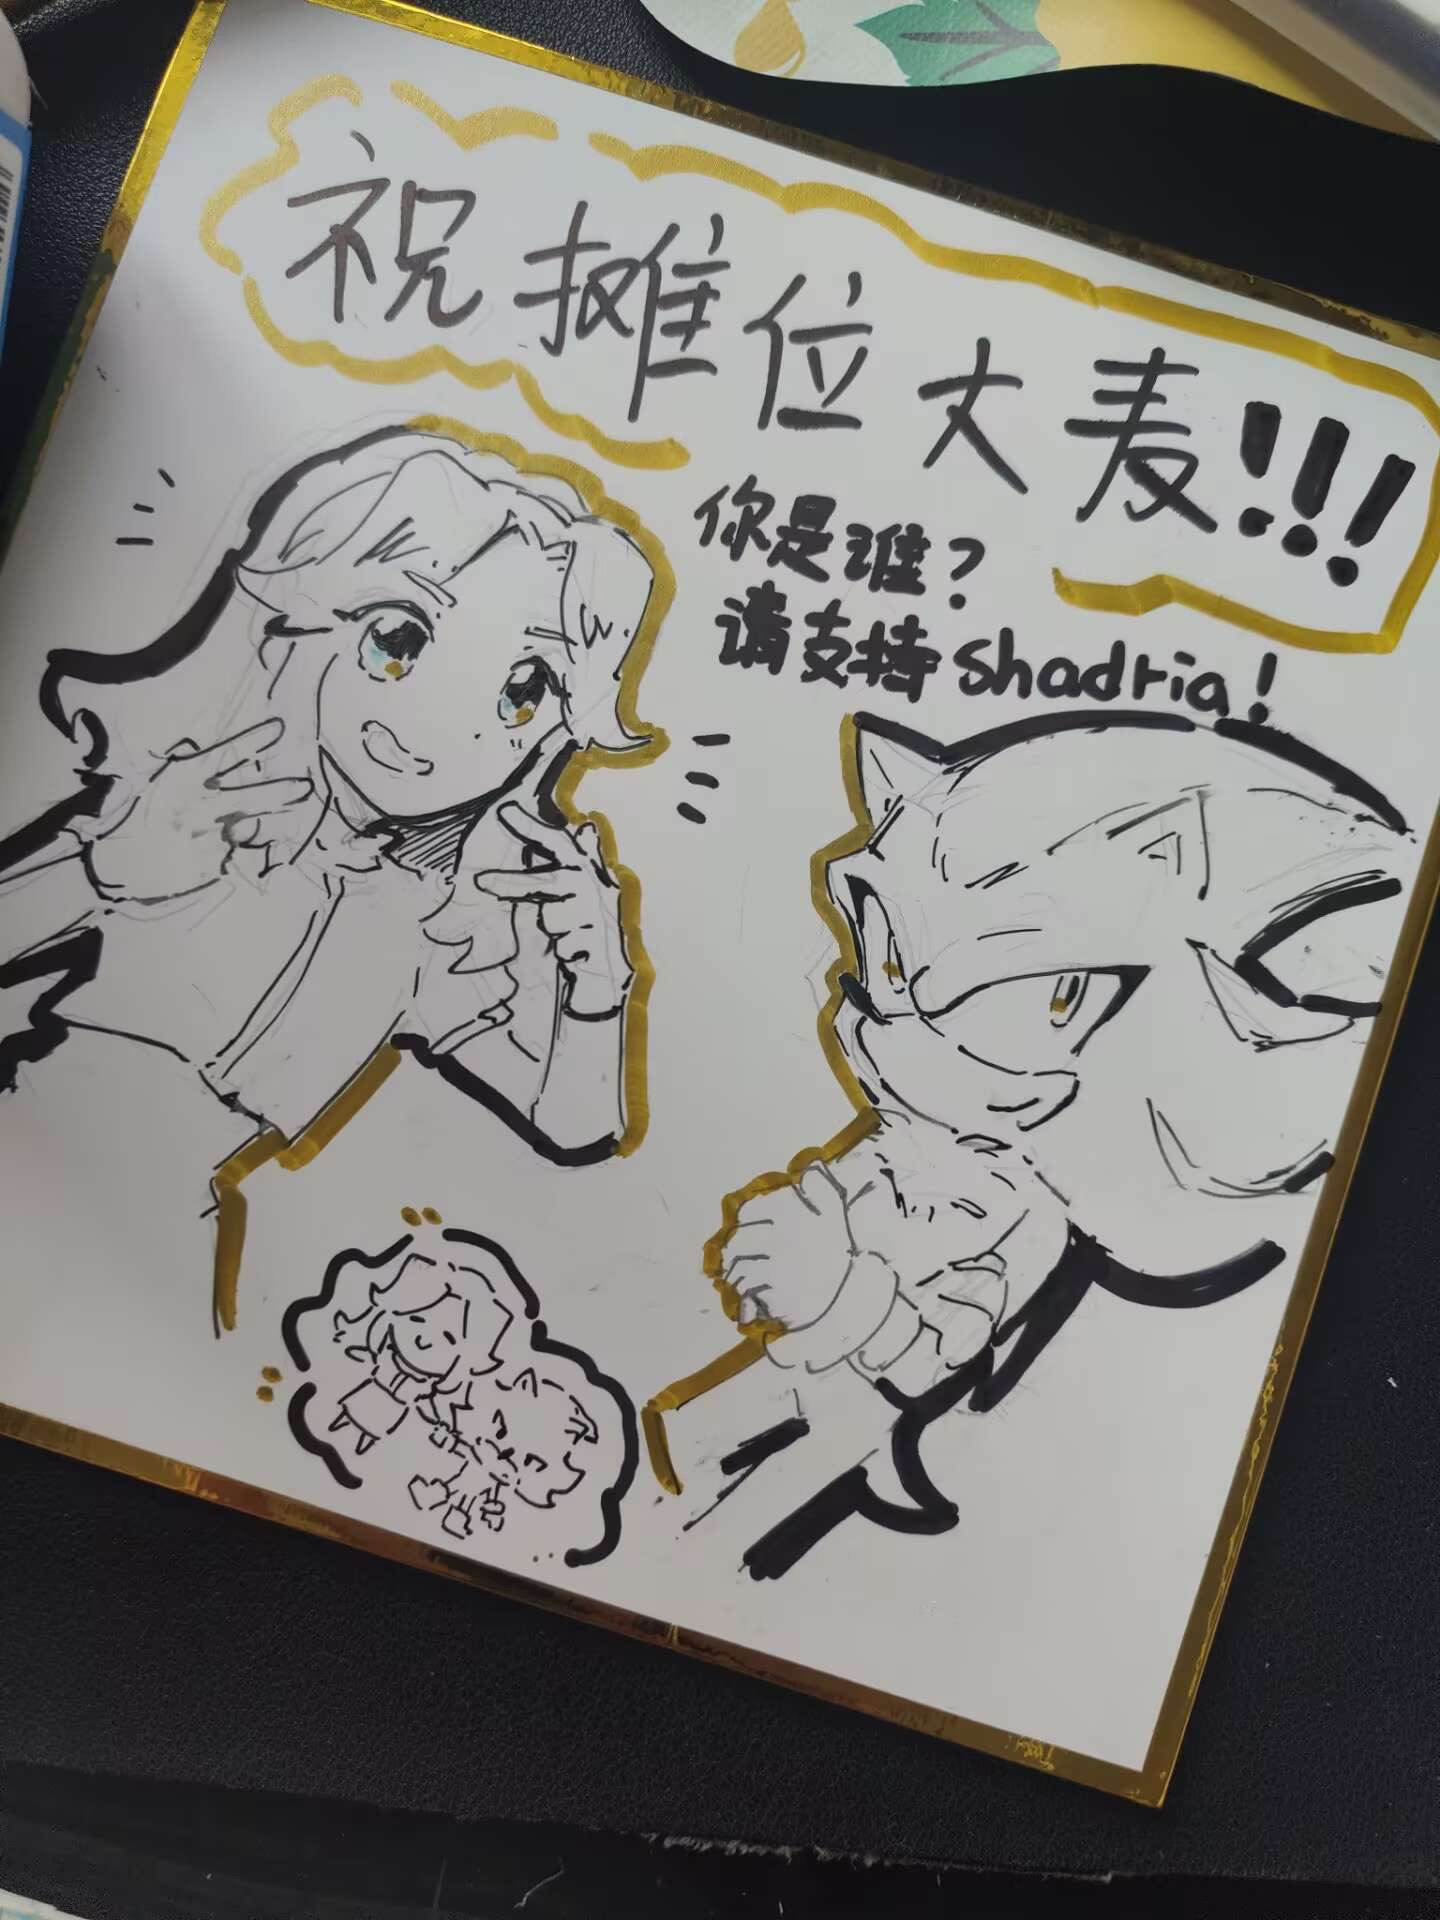 祝摊位大麦!!!
你是谁?
请支持Shadria!